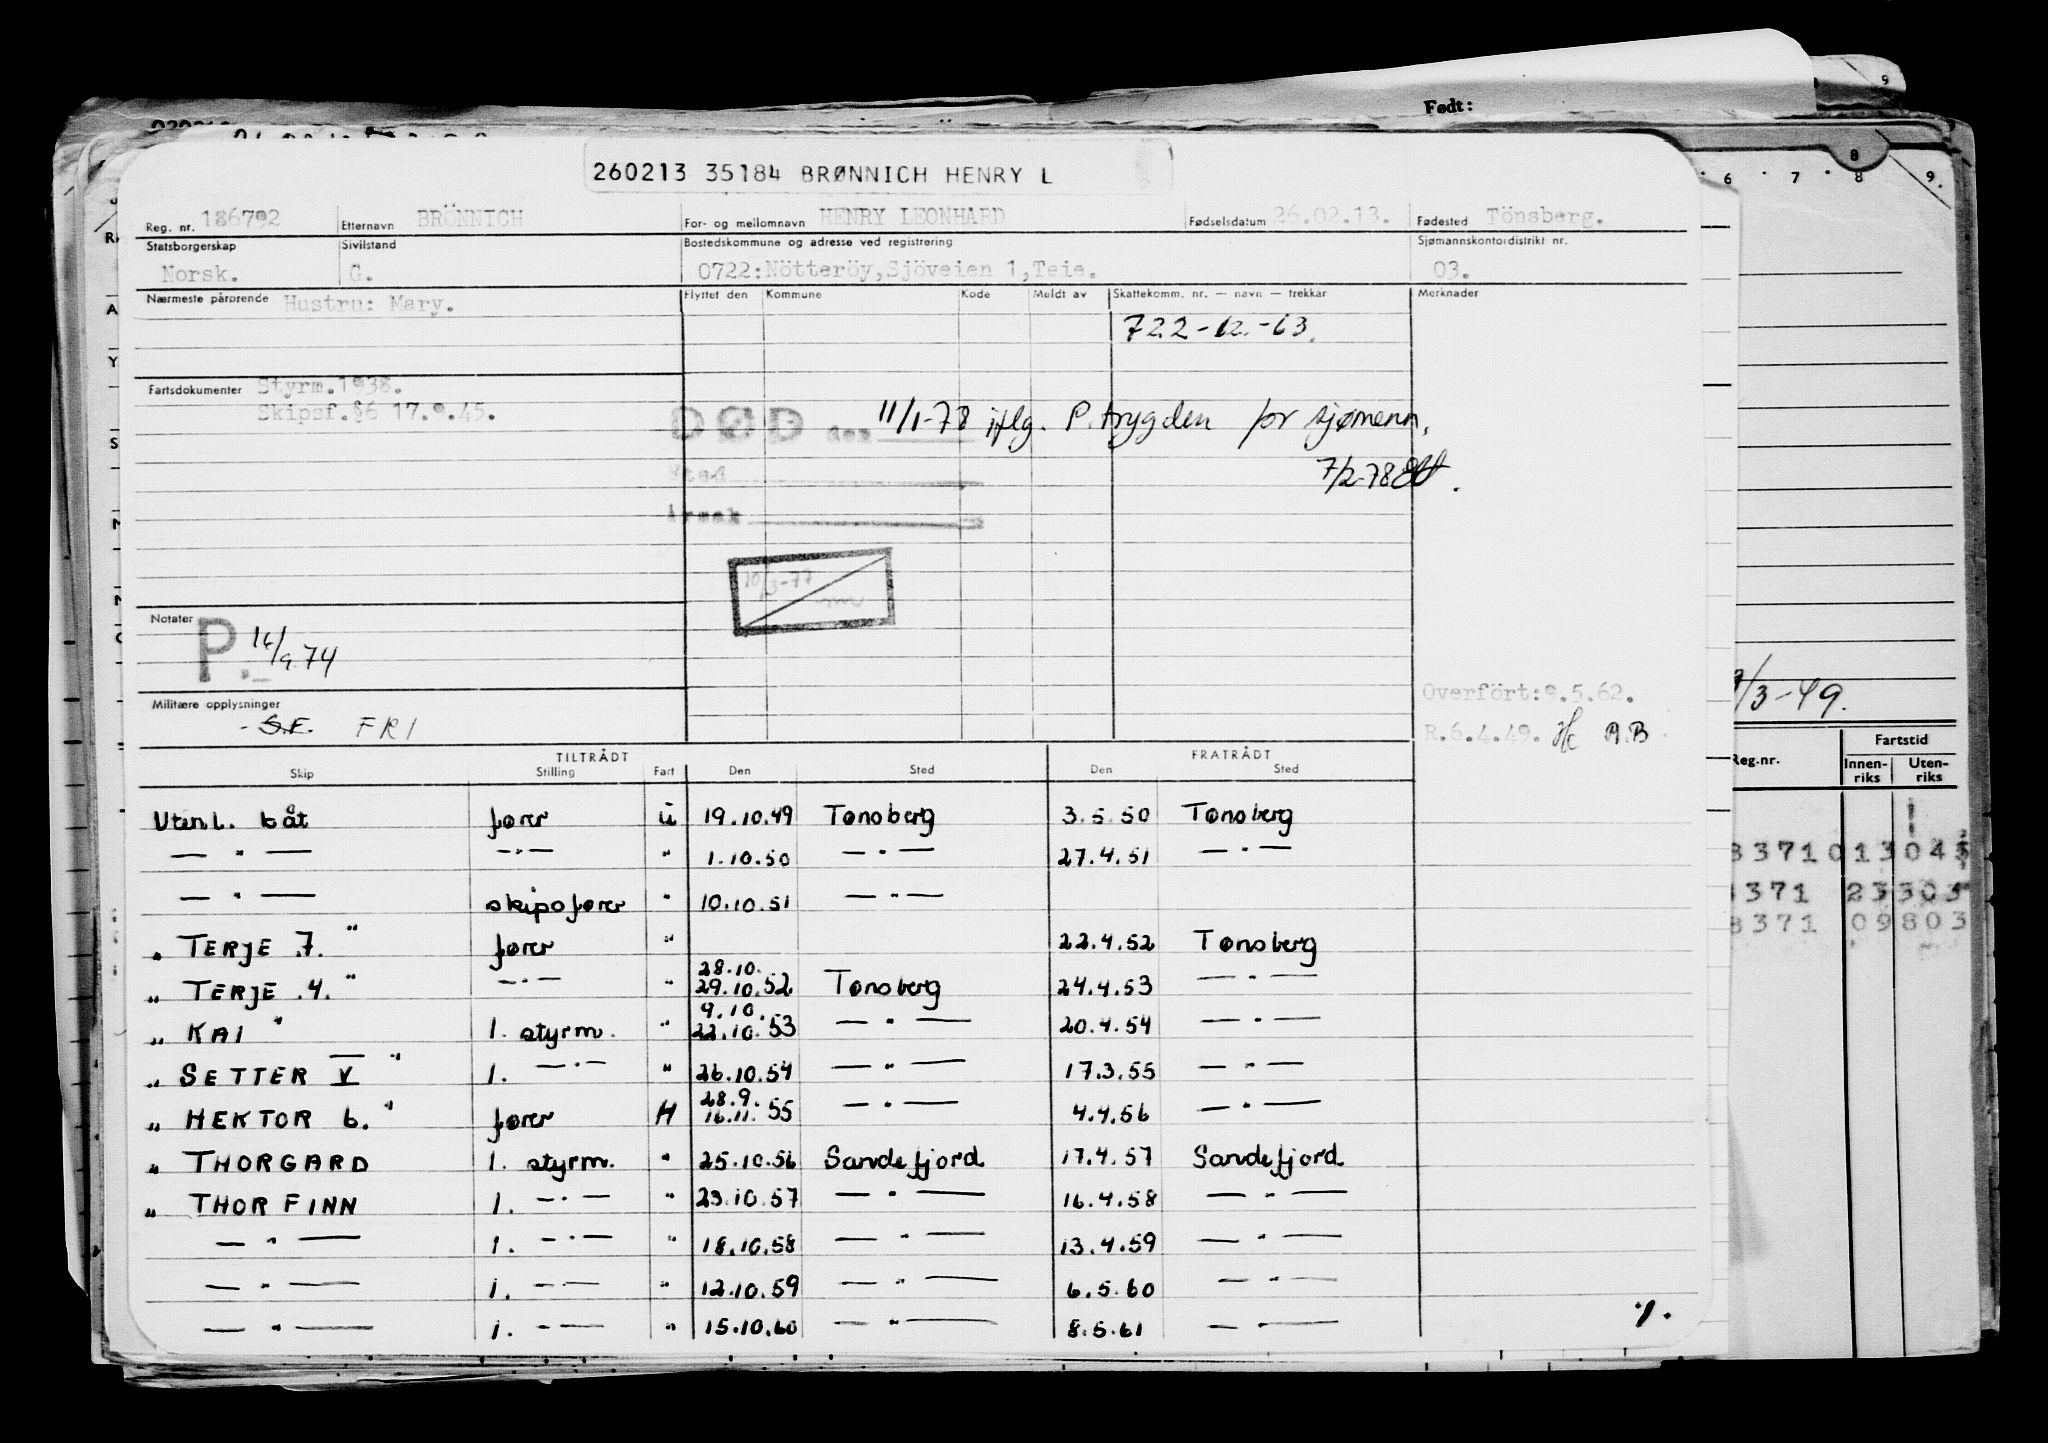 Født:
9
260213 35184 BRØNNICH HENRY L
8
6 7 8 9.
Reg. nr. 186792 Etternavn BRÖNNICH For- og mellomnavn HENRY LEONHARD Fødselsdatum 26.02.13. Fødested Tönsberg.
Statsborgerskap Sivilstand Bostedskommune og adresse ved registrering Sjømannskontordistrikt nr.
Norsk. G. 0722:Nötteröy,Sjöveien 1,Teie. 03.
Nærmeste pårørende Hustru: Mary. Flyttet den Kommune Kode Meldt av Skattekomm. nr. — navn — trekkar Merknader
722-12.-63.
Fartsdokumenter Styrm.1938.
Skipsf.§6 17.9.45.
DØD den 11/1-78 iflg. P.trygden for sjømenn,
Sted 7/2-78
Årsak
10/3-77
Notater
P. 16/9.74
Militære opplysninger
- S.F. FRI
Overfört:9.5.62.
R.6.4.49. Hc A.B
/3-49.
TILTRÅDT FRATRÅDT
Skip Stilling Fart Den Sted Den Sted
Reg.nr. Fartstid
Innen-riks Uten-riks
Utenl. båt fører u 19.10.49 Tønsberg 3.5.50 Tønsberg
— " — — " — " 1.10.50 — " — 27.4.51 — " —
— " — skipsfører " 10.10.51 — " —
" TERJE .7. " fører " 22.4.52 Tønsberg
28.10.
" TERJE .4. " — " — " 29.10.52 Tønsberg 24.4.53 — " —
9.10.
" KAI " 1. styrm. " 22.10.53 — " — 20.4.54 — " —
" SETTER V " 1. — " — " 26.10.54 — " — 17.3.55 — " —
28.9.
" HEKTOR 6. " fører H 16.11.55 — " — 4.4.56 — " —
" THORGARD 1. styrm. " 25.10.56 Sandefjord 17.4.57 Sandefjord
" THORFINN 1. — " — " 23.10.57 — " — 16.4.58 — " —
— " — 1. — " — " 18.10.58 — " — 13.4.59 — " —
— " — 1. — " — " 12.10.59 — " — 6.5.60 — " —
— " — 1. — " — " 15.10.60 — " — 8.5.61 — " —